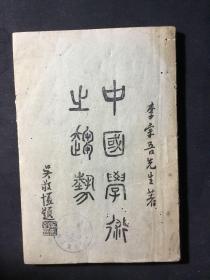 李宗吾先生著
中國學術
之趨勢
吳敬恆題